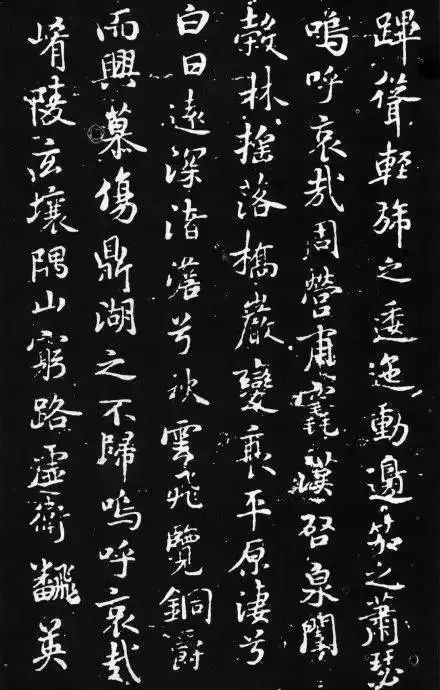 蹕聳輕旆之逶迤動邊笳之蕭瑟
嗚呼哀哉周營甫竁漢啓泉闈
穀林搖落橋巖變衰平原淒兮
白日遠深渚澹兮秋雲飛覽銅爵
而興慕傷鼎湖之不歸嗚呼哀哉
崤陵玄壤隅山窮路虛衛飜英